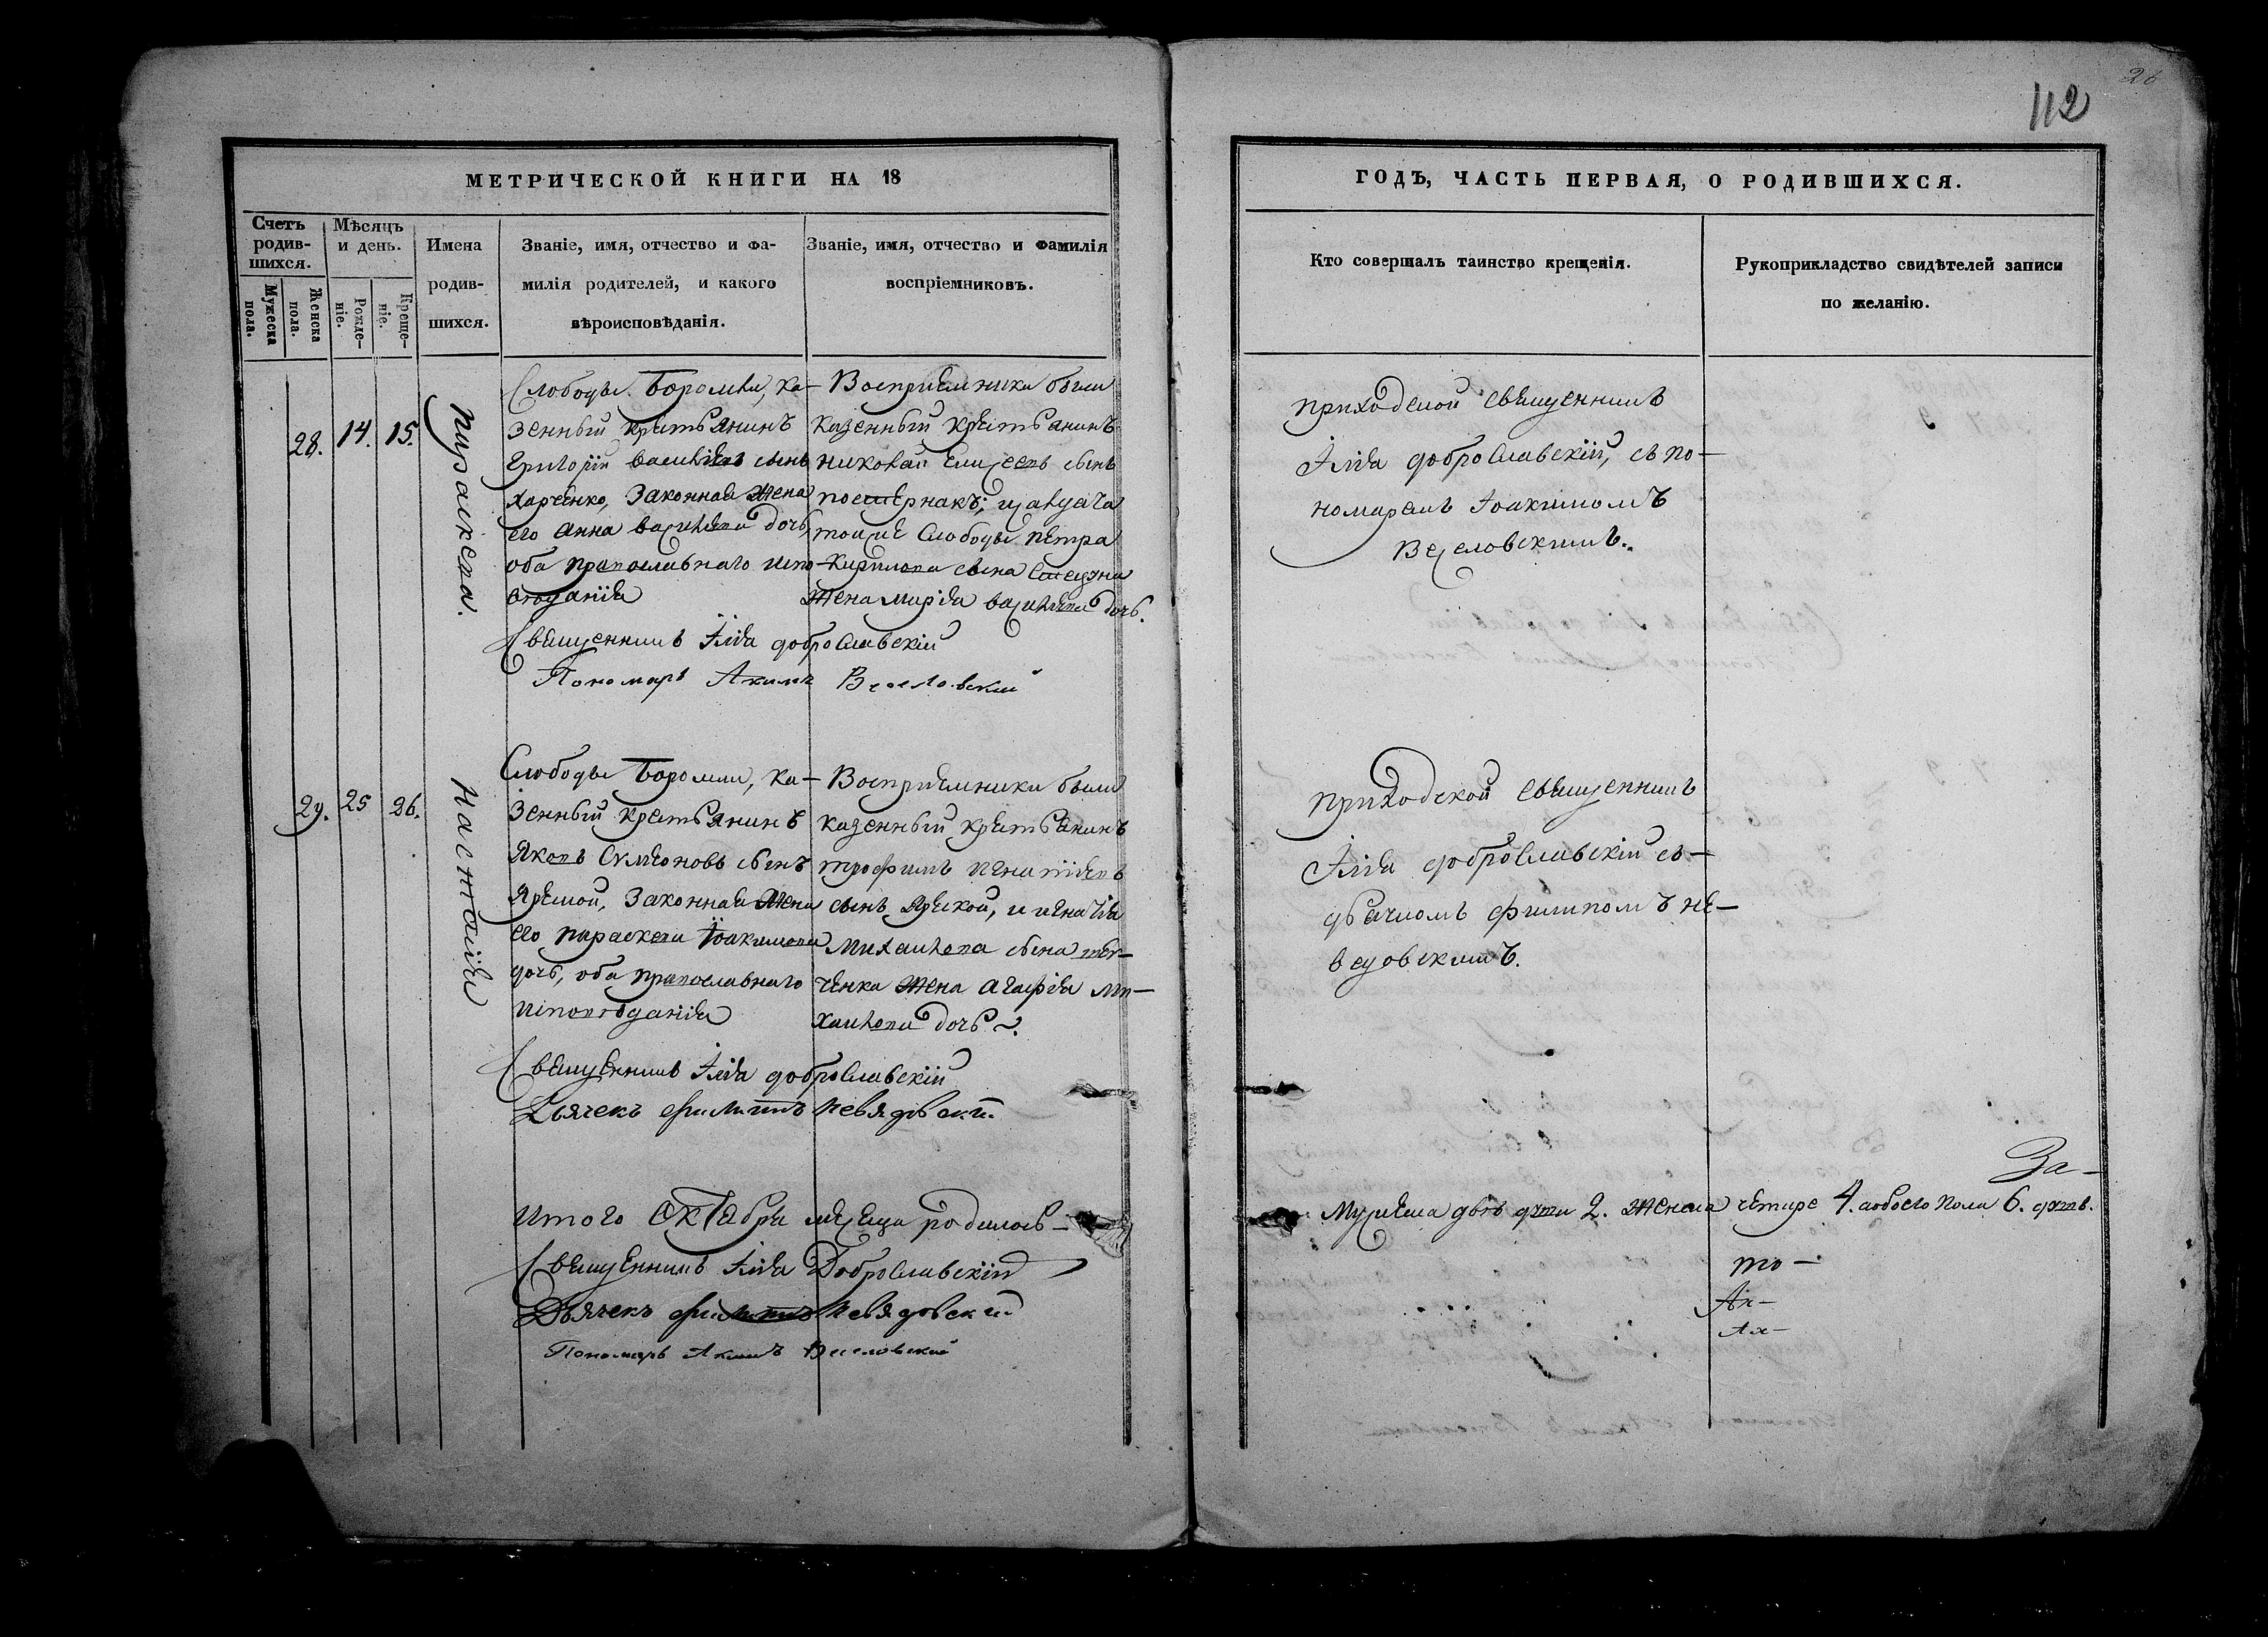 26
112
МЕТРИЧЕСКОЙ КНИГИ НА 18
Счетъ родившихся.
Мѣсяцъ и день.
Мужеска пола.
Женска пола.
Рожденіе.
Крещеніе.
Имена родившихся.
Званіе, имя, отчество и фамилія родителей, и какого вѣроисповѣданія.
Званіе, имя, отчество и фамилія воспріемниковъ.
28.
14.
15.
Параскева.
Слободы Боромли, ка-
зенный крестьянинъ
Григорій Васильевъ сынъ
Харченко, законная жена
его Анна Васильева дочь,
оба православнаго испо-
вѣданія
Воспріемники были
казенный крестьянинъ
Николай Елисеевъ сынъ
тоиже слободы Петра
Кирилова сына
жена Марія Васильева дочь.
Священникъ Іліа Доброславскій
Пономарь Акимъ Веселовскій
29.
25
26.
Настасія
Слободы Боромли, ка-
зенный крестьянинъ
Яковъ Симеоновъ сынъ
законная жена
его Параскева Іоакимова
дочь, оба православнаго
исповѣданія
Воспріемники были
казенный крестьянинъ
Трофимъ Игнатіевъ
сынъ
Михайлова сына
ченка жена Агафіа Ми-
хайлова дочь
Священникъ Іліа Доброславскій
Дьячекъ Филиппъ Невядовскій
Итого октабря месяца родилось-
Священникъ Іліа Доброславскій
Дьячекъ Филиппъ Невядовскій
Пономарь Акимъ Веселовскій
ГОДЪ, ЧАСТЬ ПЕРВАЯ, О РОДИВШИХСЯ.
Кто совершалъ таинство крещенія.
Рукоприкладство свидѣтелей записи
по желанію.
Приходской священникъ
Іліа Доброславскій, съ по-
номаремъ Іоакимомъ
Веселовскимъ.
Приходской священникъ
Іліа Доброславскій съ-
дьячкомъ Филипомъ Не-
вядовскимъ.
За-
Мужеска двѣ дѣти 2. женска четыре 4. а обоего пола 6. дѣтѣ.
то-